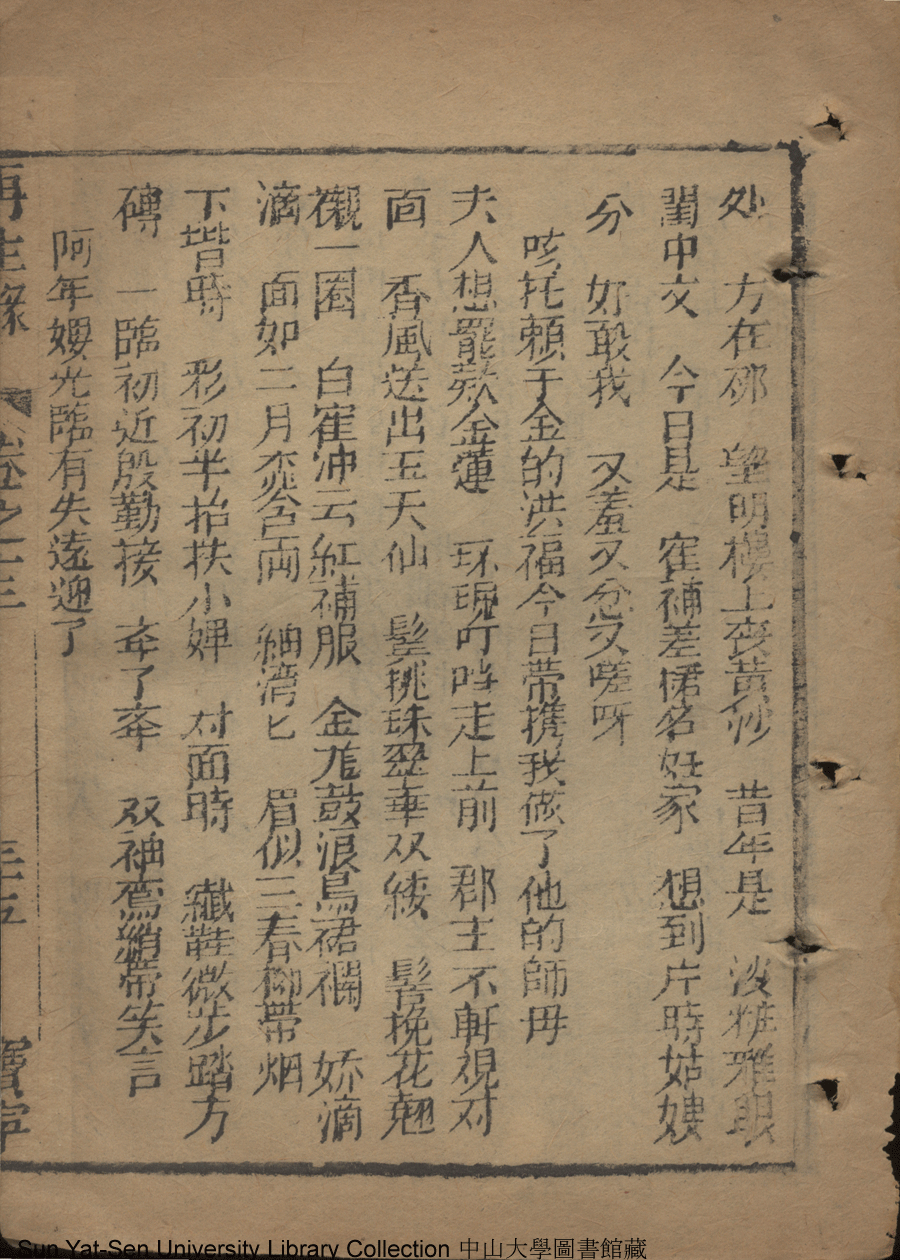 处　方在那　望明樓上丧黄沙　昔年是　淡粧雅眼
閨中文　今日是　宦補差裙名妊家　想到片時姑嫂
分　好敢我　又羞又忿又嗟呀
咳托頼于金的洪福今日带携我做了他的師母
夫人想罷款金蓮　环珮叮噹走上前　郡主不軒視对
面　香風送出玉天仙　鬓挑珠翠垂双绫　髻挽花翘
襯一圈　白寉冲云紅補服　金龙鼓浪鳥裙襴　娇滴
滴　面如二月奕合両　細湾匕　眉似三春柳帶烟
下堦時　彩初半抬扶小婢　对面時　纖鞋微步踏方
磚　一臨初近殷勤接　奔了奔　双袖鸾綃帶笑言
阿年嫂光臨有失遠迎了
再生緣　卷之十三　三五　寶寧
Sun Yat-Sen University Library Collection 中山大學圖書館藏